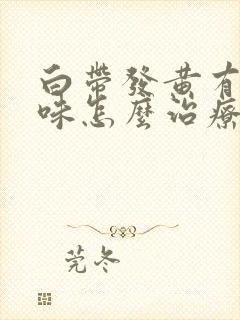 白帶發黃有
味怎麼治療
莞冬